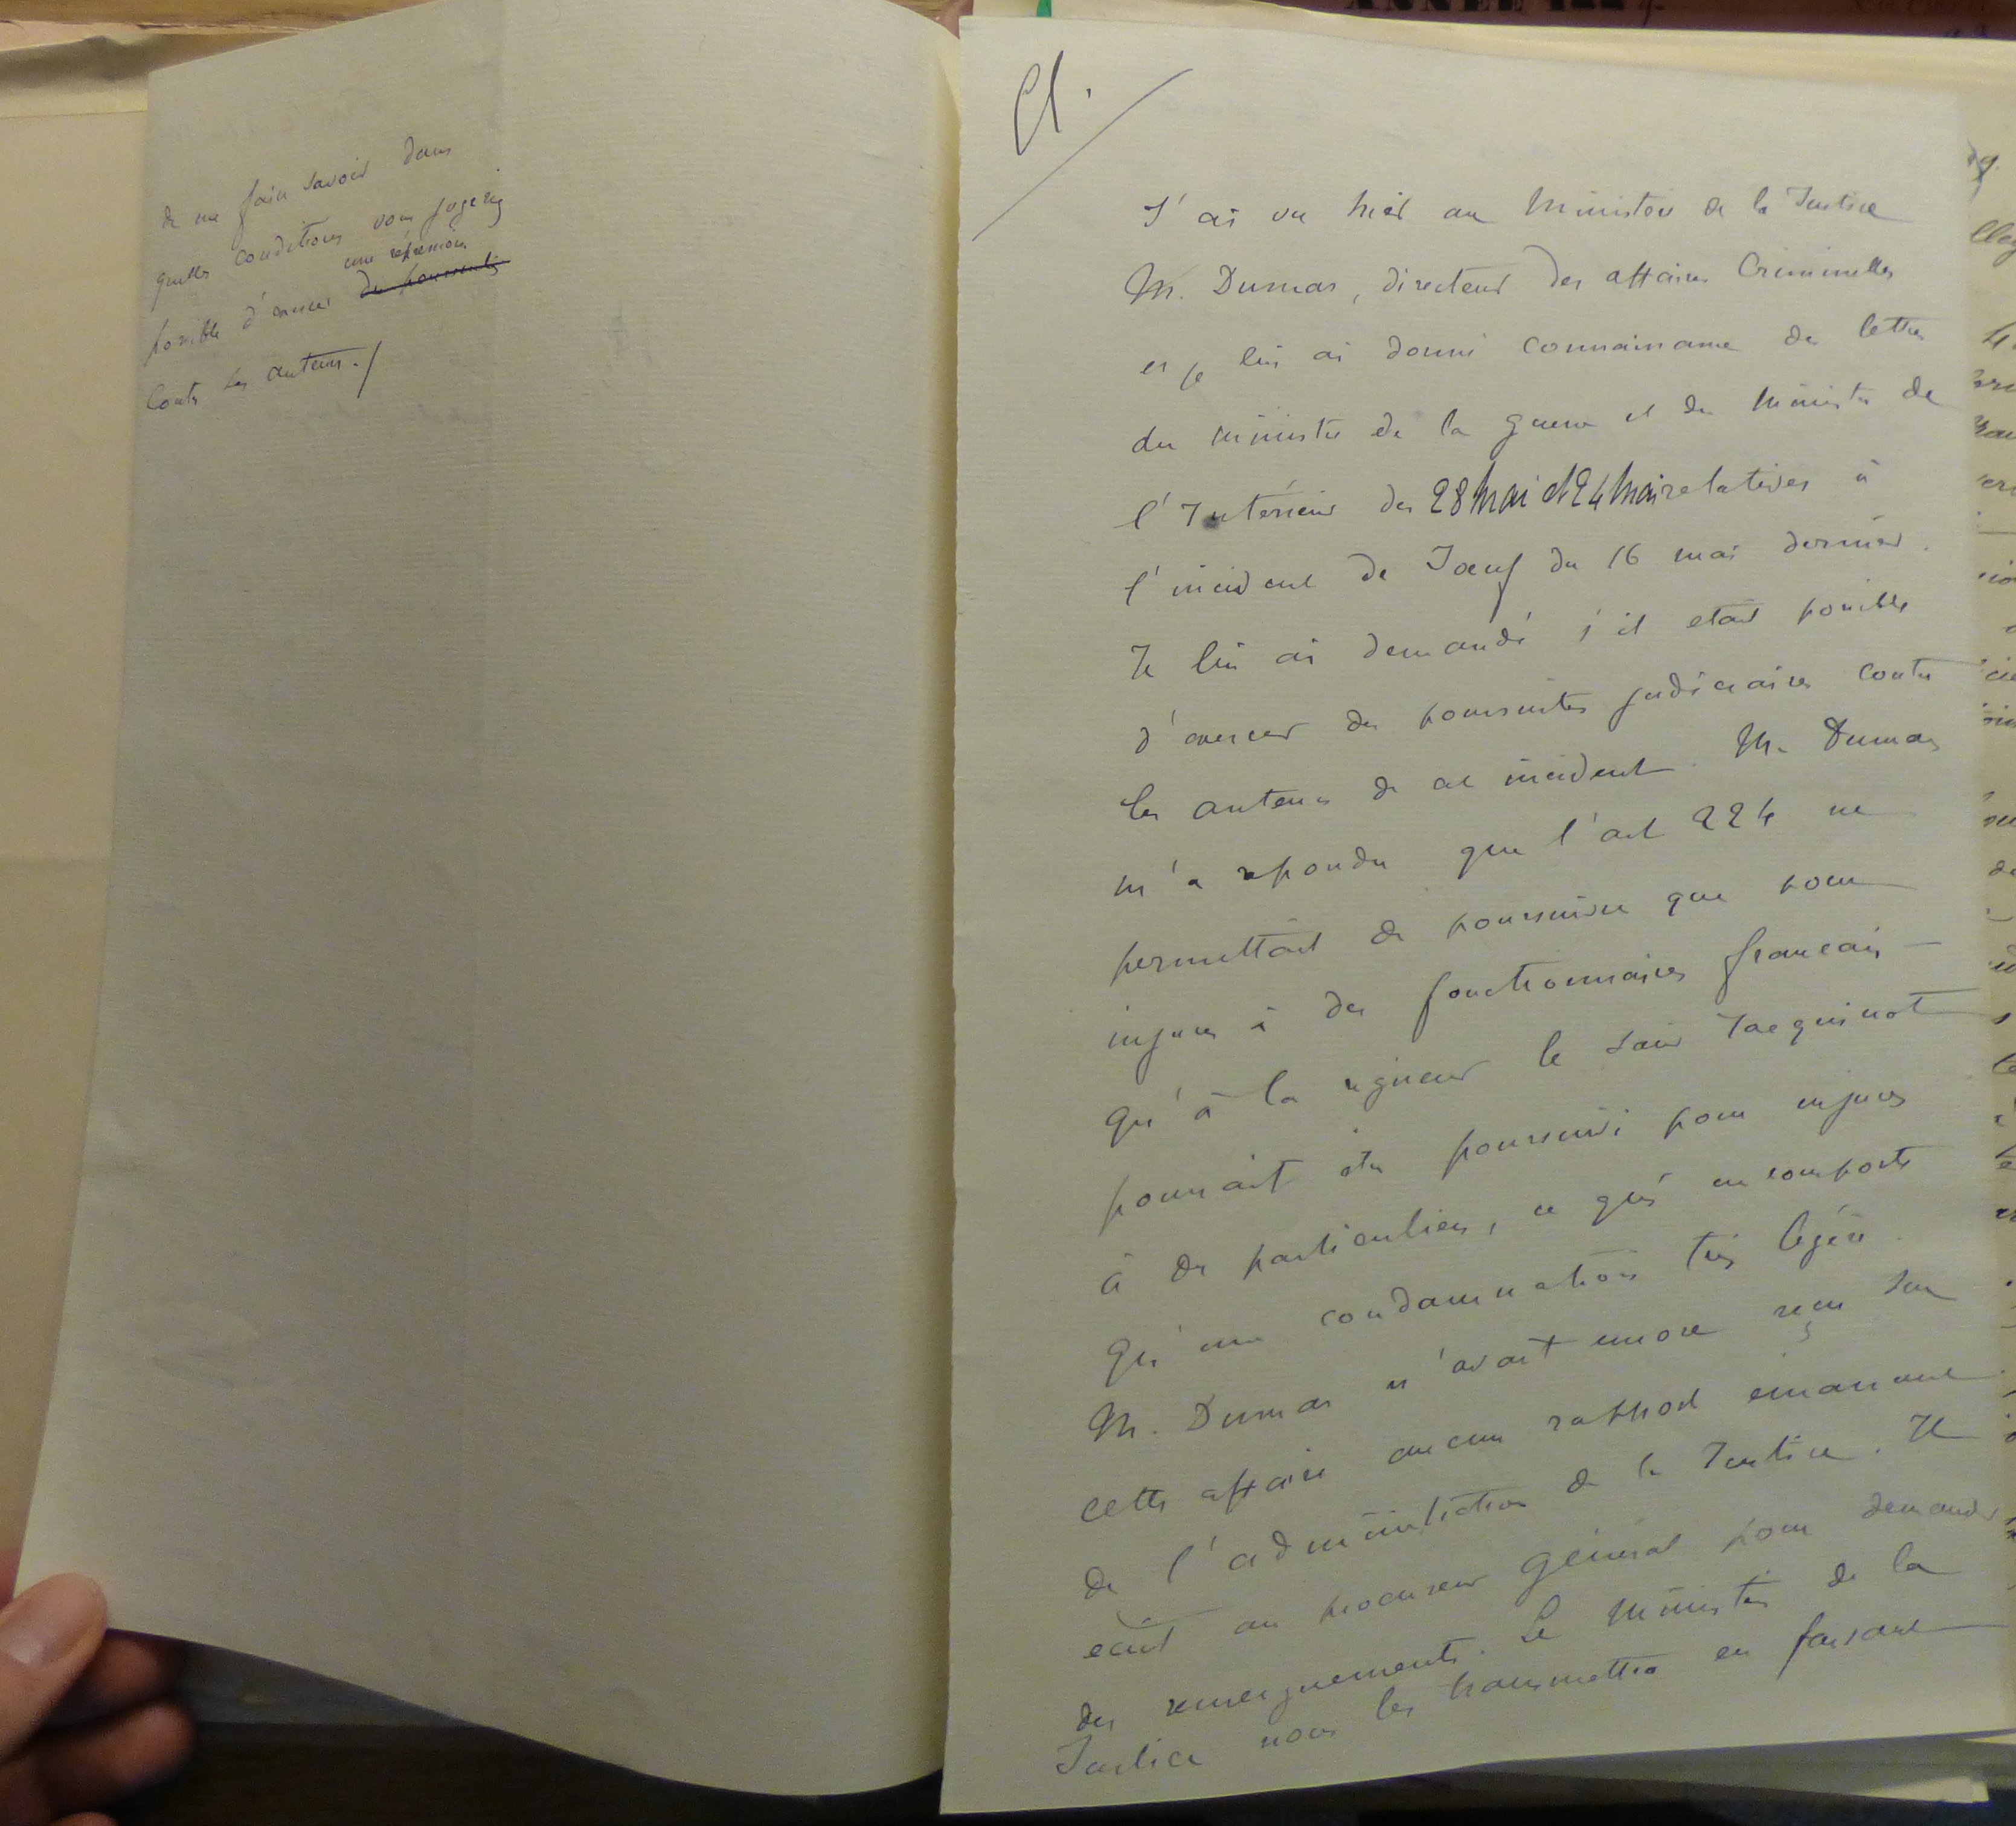 de me faire savoir dans
quelles conditions vous jugeriez
une répression
possible d'exercer des poursuites
contre les auteurs ./
Cl.
J'ai vu hier au Ministère de la Justice
M. Dumas, directeur des affaires Criminelles
et je lui ai donné connaissance des lettres
du Ministre de la guerre et du Ministre de
l'Intérieur des 28 Mai et 24 Mai relatives à
l'incident de Joeuf du 16 mai dernier.
Je lui ai demandé s'il etait possible
d'exercer des poursuites judiciaires contre
les auteurs de cet incident. M. Dumas
m'a repondu que l'art 224 ne
permettait de poursuivre que pour
injures à des fonctionnaires francais –
qu'à la rigueur le Jacquinot
pourrait être poursuivi pour injures
à des particuliers, ce qui ne comporte
qu'une condamnation très légère.
M. Dumas n'avait encore reçu sur
cette affaire aucun rapport émanant
de l'administration de la Justice. Il
ecrit au procureur Général pour demander
des renseignements. Le Ministère de la
Justice nous les transmettra en faisant